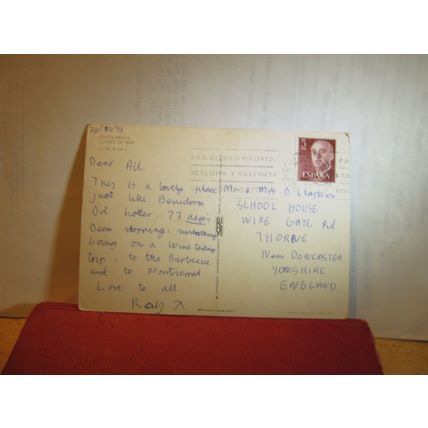 COSTA BRAVA
LLORET DE MAR
PARA DINERO MADRID
BARCELONA Y VALENCIA
5
ESPAÑA
Dear All.
This is a lovely place
just like Benidorm
Bit hotter. 73 degs.
Been shopping, sunbathing
Going on a Wine tasting
trip, to the Barbecue
and to Montserrat
Love to all.
Ray X
Mr & Mrs D
SCHOOL HOUSE
WIKE GATE Rd.
THORNE
Near DONCASTER
YORKSHIRE
ENGLAND